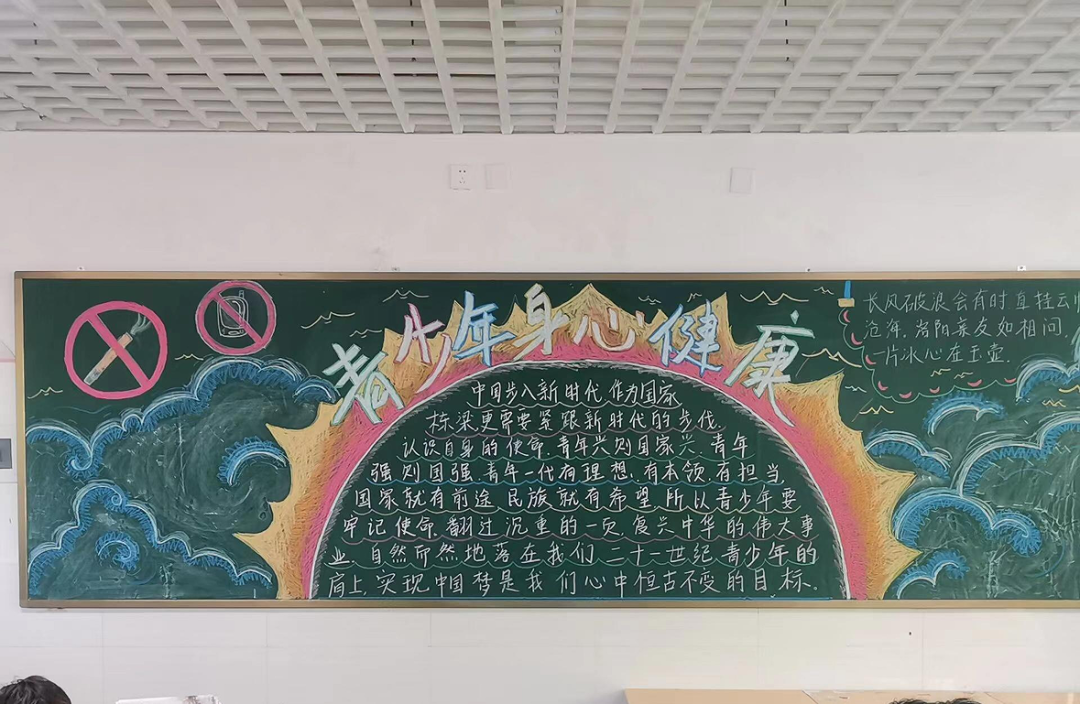 青少年身心健康
中国步入新时代,作为国家
栋梁更需要紧跟新时代的步伐,
认识自身的使命,青年兴则国家兴,青年
强则国强,青年一代有理想,有本领,有担当,
国家就有前途,民族就有希望,所以青少年要
牢记使命,翻过沉重的一页,复兴中华的伟大事
业,自然而然地落在我们二十一世纪青少年的
肩上,实现中国梦是我们心中恒古不变的目标。
长风破浪会有时直挂云帆
沧海,洛阳亲友如相问
一片冰心在玉壶.